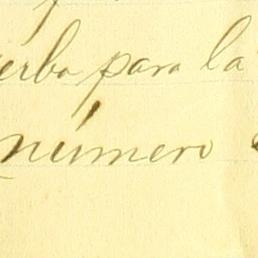 erba para la
número